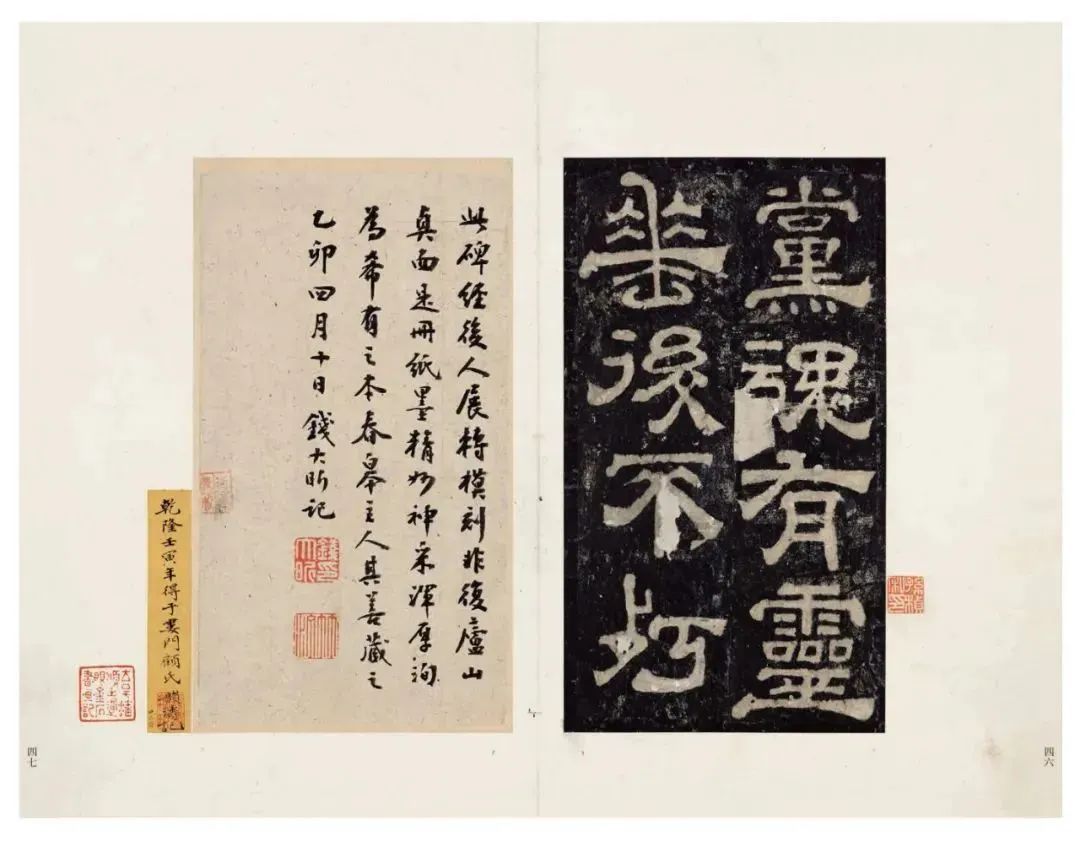 黨魂有靈
垂後不朽
四六
此碑經後人展轉模刻非復廬山
真面是冊紙墨精妙神采渾厚洵
為希有之本春皋主人其善藏之
乙卯四月十日錢大昕記
乾隆壬寅年得于婁門顧氏
四七